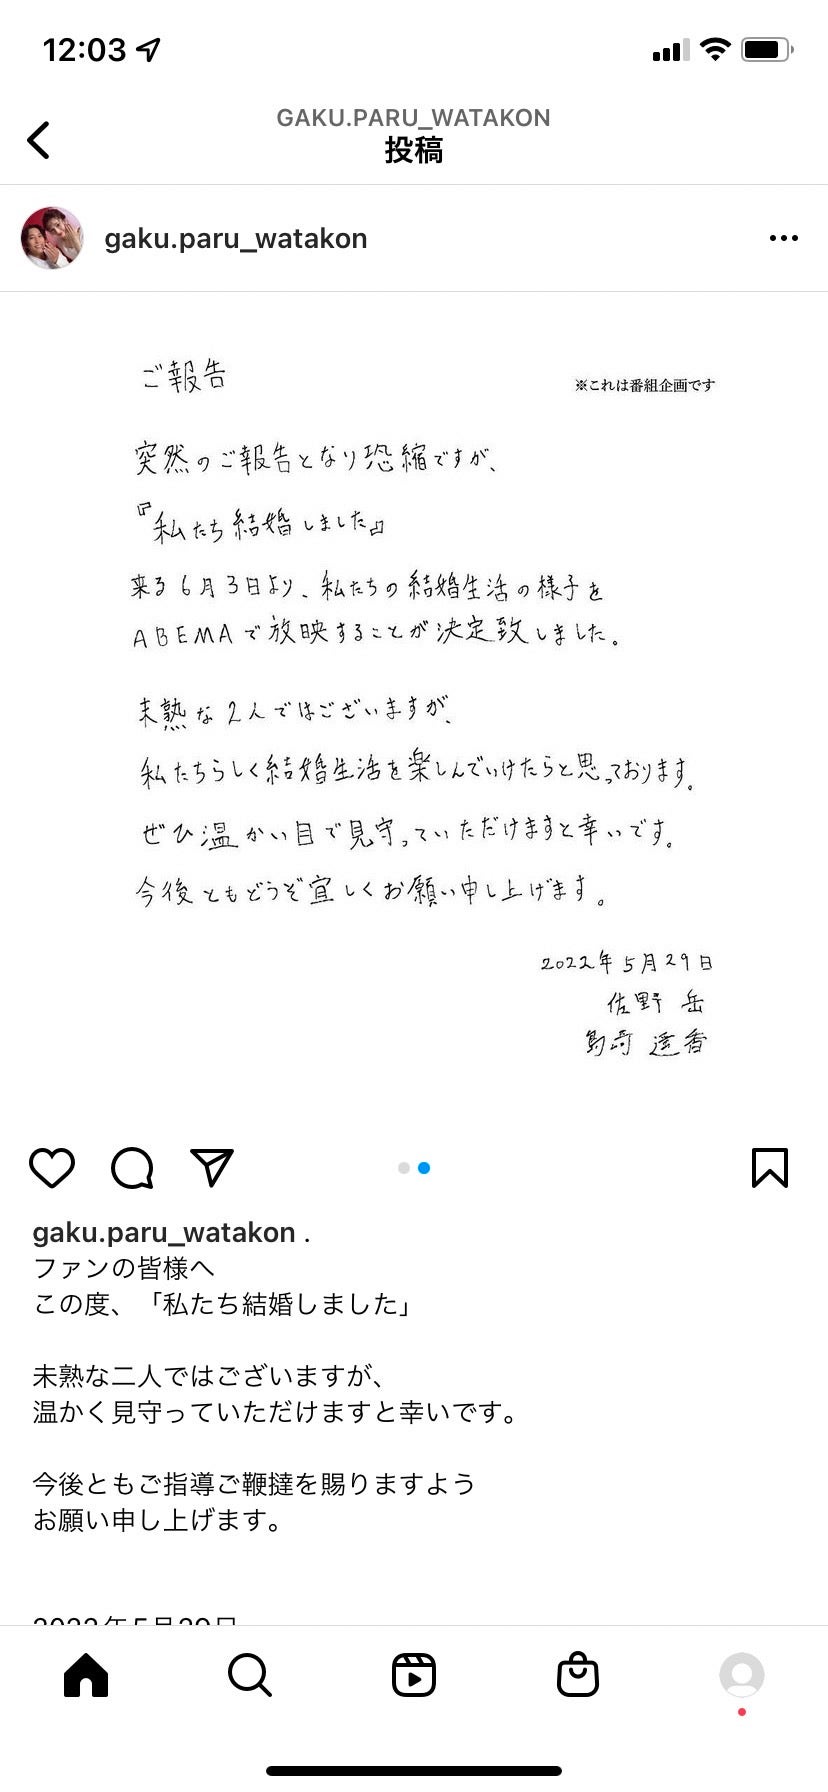 12:03
GAKU.PARU_WATAKON
投稿
gaku.paru_watakon
ご報告
※これは番組企画です
突然のご報告となり恐縮ですが、
『私たち結婚しました』
来る6月3日より、私たちの結婚生活の様子を
ABEMAで放映することが決定致しました。
未熟な2人ではございますが、
私たちらしく結婚生活を楽しんでいけたらと思っております。
ぜひ温かい目で見守っていただけますと幸いです。
今後ともどうぞ宜しくお願い申し上げます。
2022年5月29日
佐野 岳
島崎 遥香
gaku.paru_watakon .
ファンの皆様へ
この度、「私たち結婚しました」
未熟な二人ではございますが、
温かく見守っていただけますと幸いです。
今後ともご指導ご鞭撻を賜りますよう
お願い申し上げます。
2022年5月29日